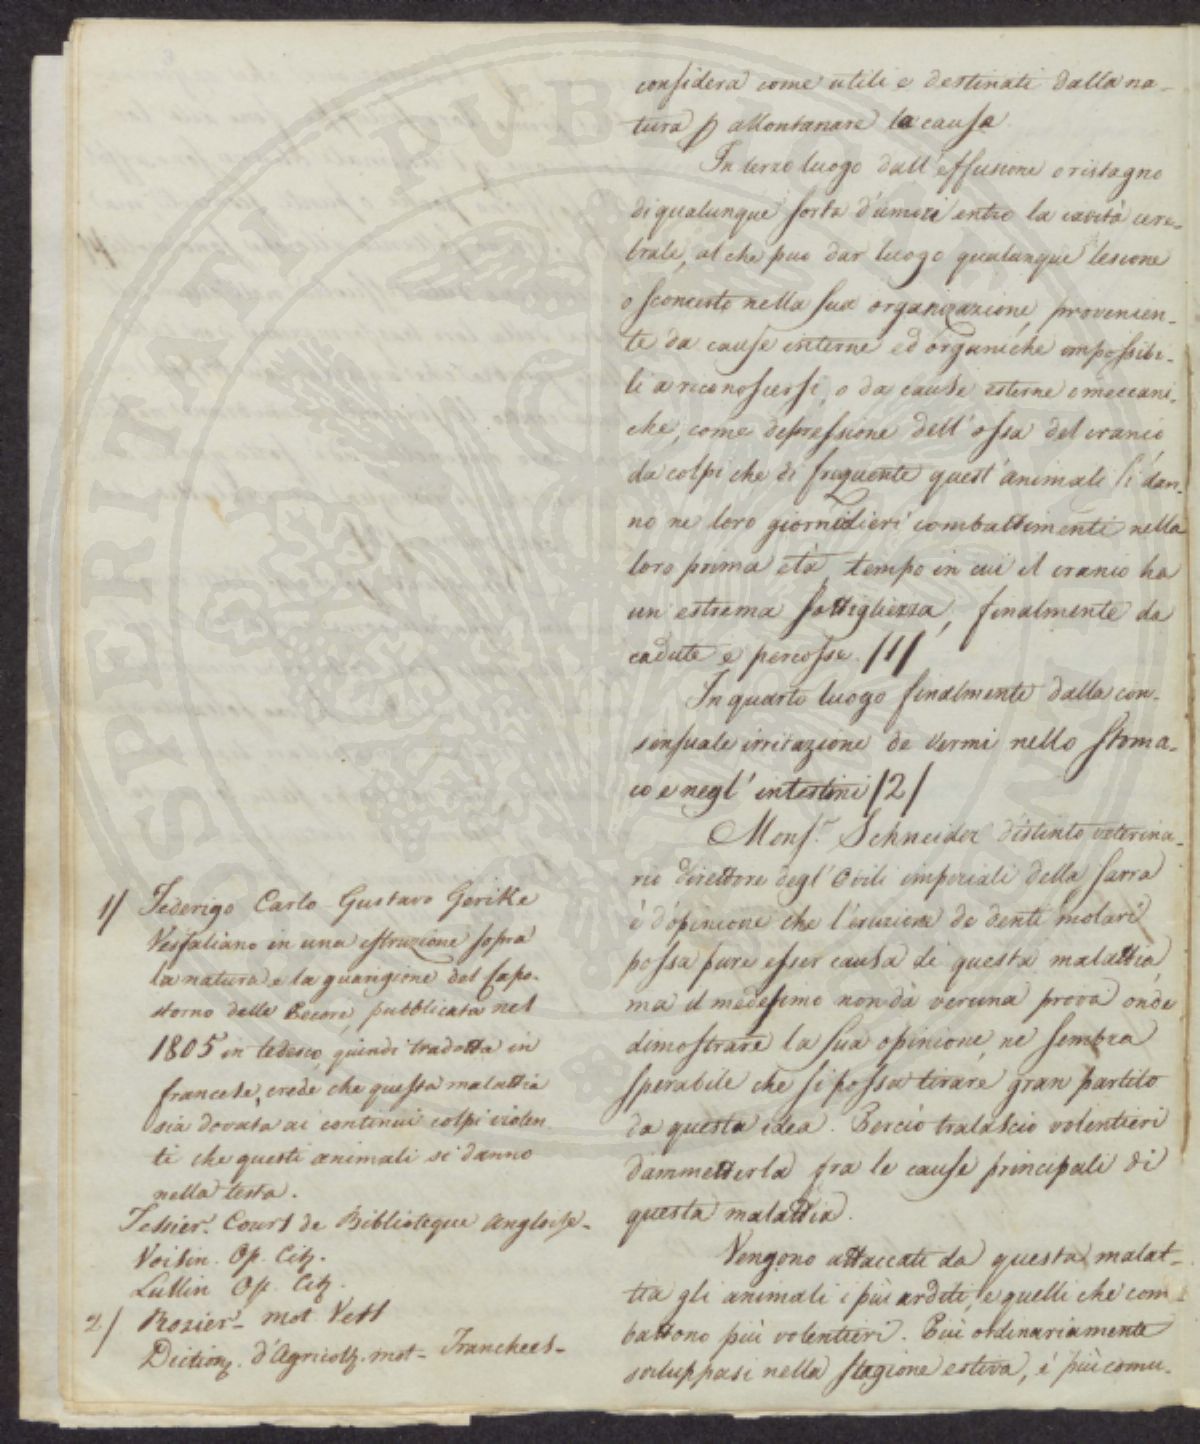 considera come utili e destinati dalla na-
tura p allontanare la causa.
In terzo luogo dall'effusione o ristagno
di qualunque sorta d'umori entro la cavità cere-
brale, al che può dar luogo qualunque lesione
o sconcerto nella sua organizazione, provenien-
te da cause interne ed organiche impossibi-
li a riconoscersi, o da cause esterne o meccani-
che, come depressione dell'ossa del cranio
da colpi che di frequente quest'animali si dan-
no ne loro giornalieri combattimenti nella
loro prima età, tempo in cui il cranio ha
un estrema sottigliezza, finalmente da
cadute e percosse. /1/
In quarto luogo finalmente dalla con-
sensuale irritazione de vermi nello stoma-
co e negl'intestini /2/
Mons.r Schneider distinto veterina-
rio direttore degl'Ovili imperiali della Sarra
è d'opinione che l'eruzione de denti molari
possa pure esser causa di questa malattia,
ma il medesimo non dà veruna prova onde
dimostrare la sua opinione, ne sembra
sperabile che si possa tirare gran partito
da questa idea. Perciò tralascio volentieri
d'ammetterla fra le cause principali di
questa malattia.
Vengono attaccati da questa malat-
tia gli animali i più arditi, e quelli che com-
battono più volentieri. Più ordinariamente
sviluppasi nella stagione estiva, è più comu-
1/ Federigo Carlo Gustavo Gerike
Vesfaliano in una istruzione sopra
la natura e la guarigione del capo-
storno delle Pecore, pubblicata nel
1805 in tedesco, quindi tradotta in
francese, crede che questa malattia
sia dovuta ai continui colpi violen
ti che questi animali si danno
nella testa.
Tessier. Cours de Biblioteque Angloise-
Voisin. Op. Cit.
Lullin Op. Cit.
2/ Rozier- mot Vers
Diction. d'Agricolt. mot- Tranchees-
SPERITATI PUBLICAE